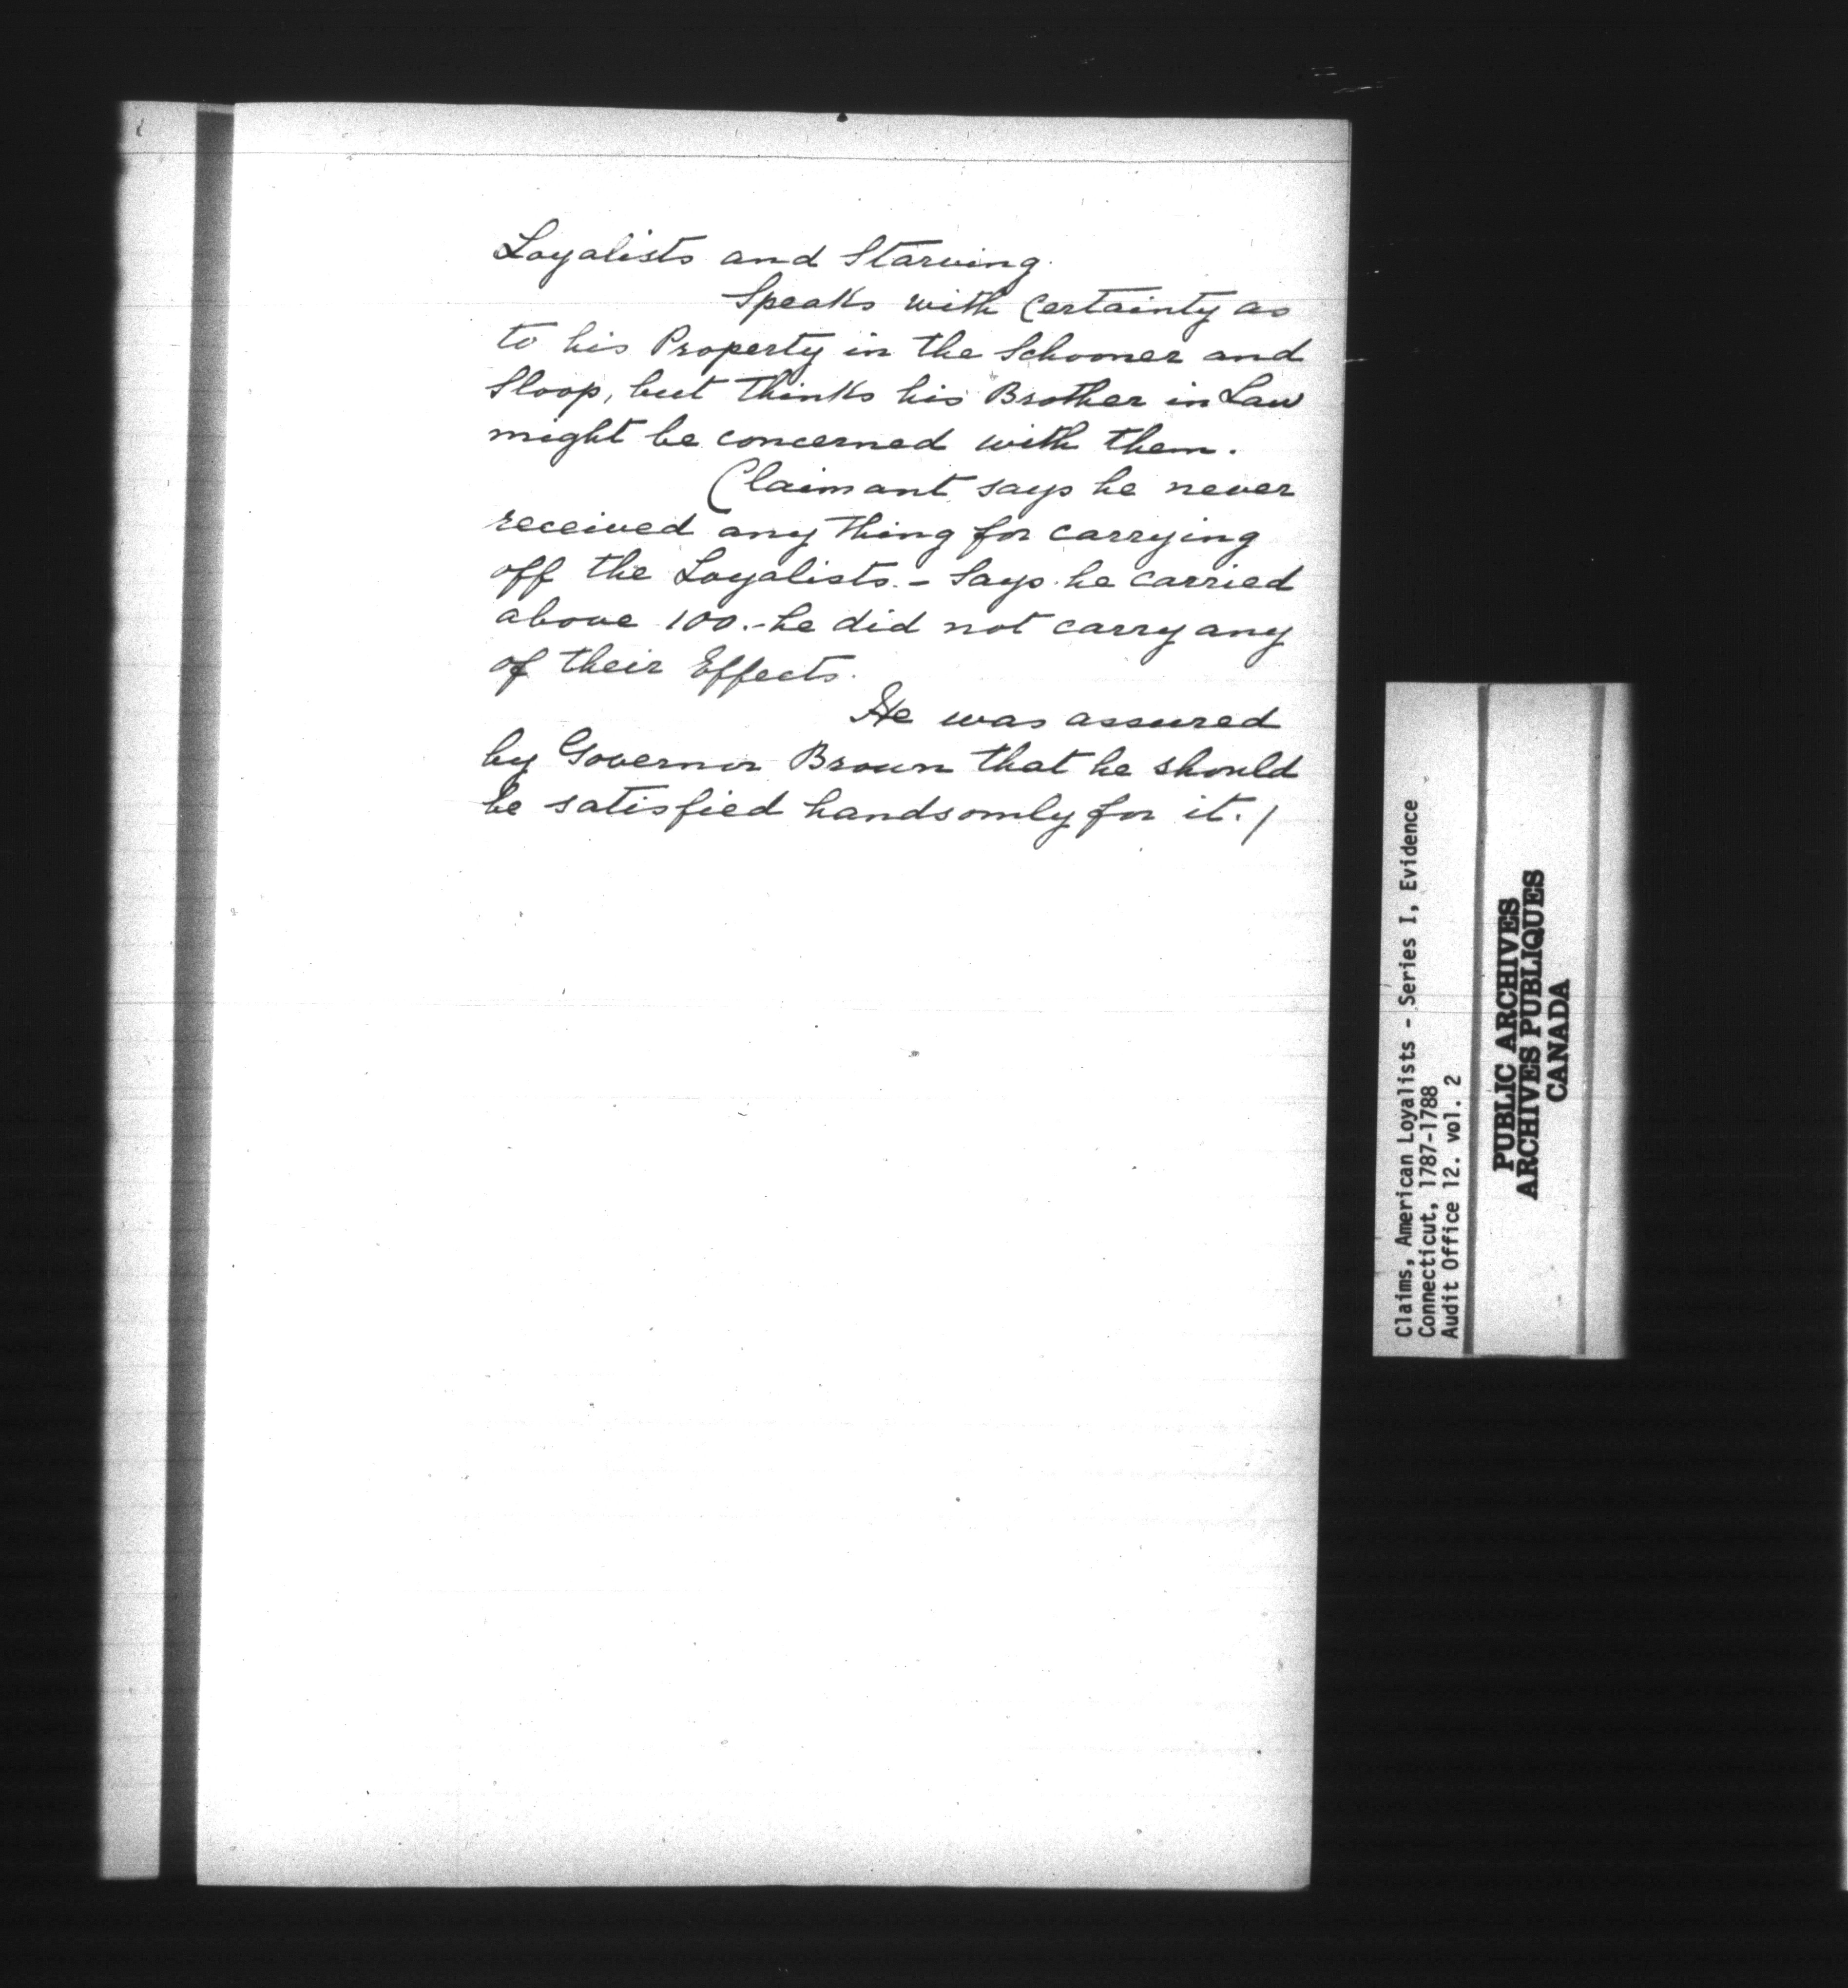 Loyalists and Starving.
Speaks with Certainty as
to his Property in the Schooner and
Sloop, but thinks his Brother in Law
might be concerned with them.
Claimant says he never
received any thing for carrying
off the Loyalists. - Says he carried
above 100. - he did not carry any
of their Effects.
He was assured
by Governor Brown that he should
be satisfied handsomly for it. /
Claims, American Loyalists - Series I, Evidence
Connecticut, 1787-1788
Audit Office 12. vol. 2
PUBLIC ARCHIVES
ARCHIVES PUBLIQUES
CANADA